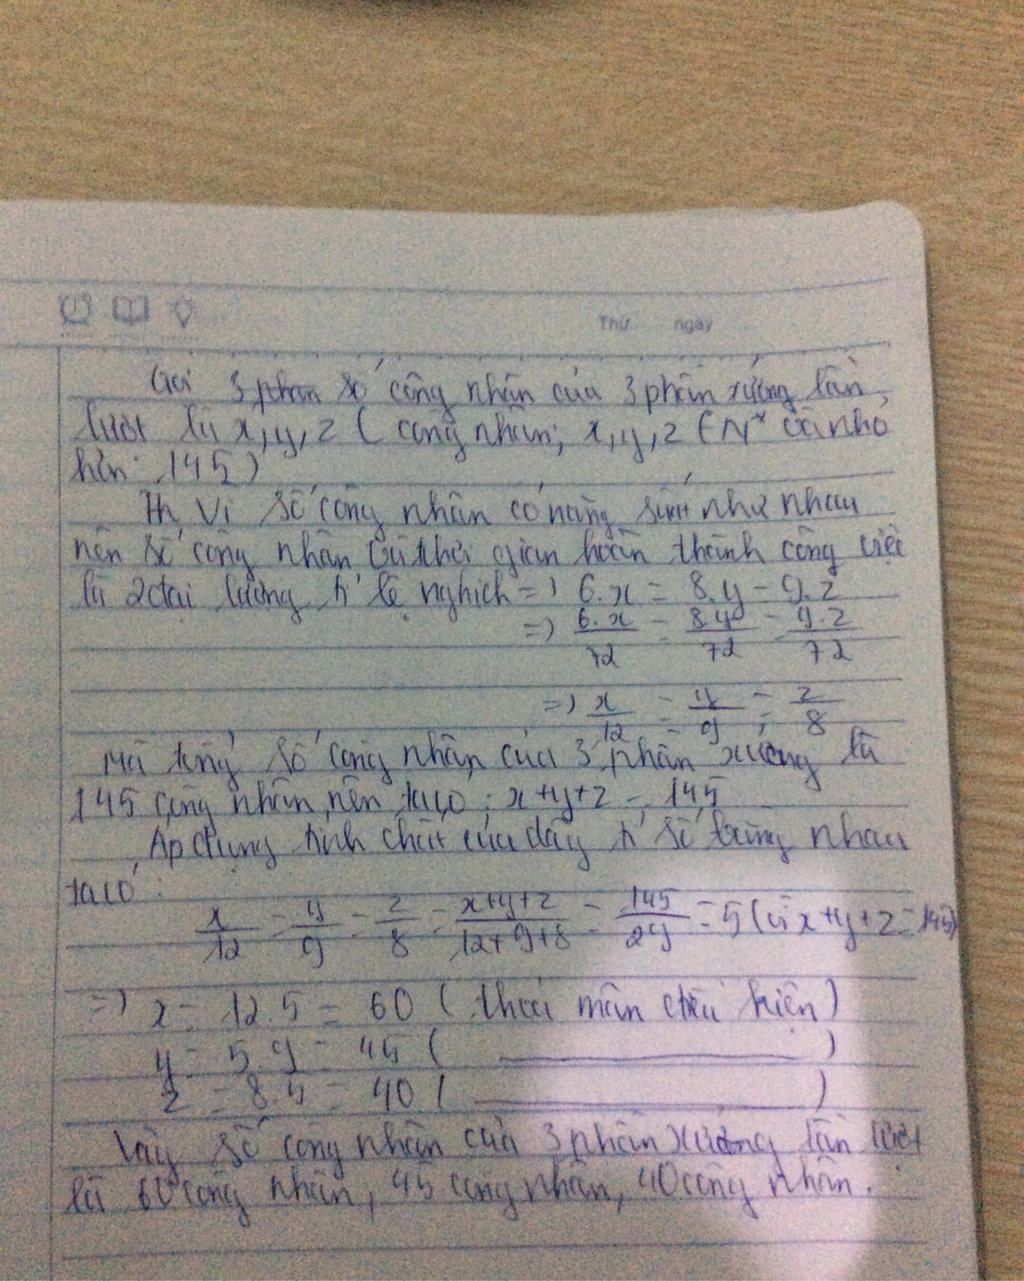 Thứ ngày
Gọi 3 phân số công nhân của 3 phân xưởng lần
lượt là x, y, z ( công nhân; x, y, z ∈ N* và nhỏ
hơn 145)
Vì số công nhân có năng suất như nhau
nên số công nhân và thời gian hoàn thành công việc
là 2 đại lượng tỉ lệ nghịch => 6.x = 8.y = 9.z
=> 6.x/72 = 8.y/72 = 9.z/72
=> x/12 = y/9 = z/8
Mà tổng số công nhân của 3 phân xưởng là
145 công nhân, nên ta có : x+y+z = 145
Áp dụng tính chất của dãy tỉ số bằng nhau
ta có :
x/12 = y/9 = z/8 = x+y+z/12+9+8 = 145/29 = 5 (vì x+y+z = 145)
=> x = 12.5 = 60 ( thoả mãn điều kiện )
y = 5.9 = 45 ( )
z = 8.5 = 40 ( )
Vậy số công nhân của 3 phân xưởng lần lượt
là 60 công nhân, 45 công nhân, 40 công nhân.